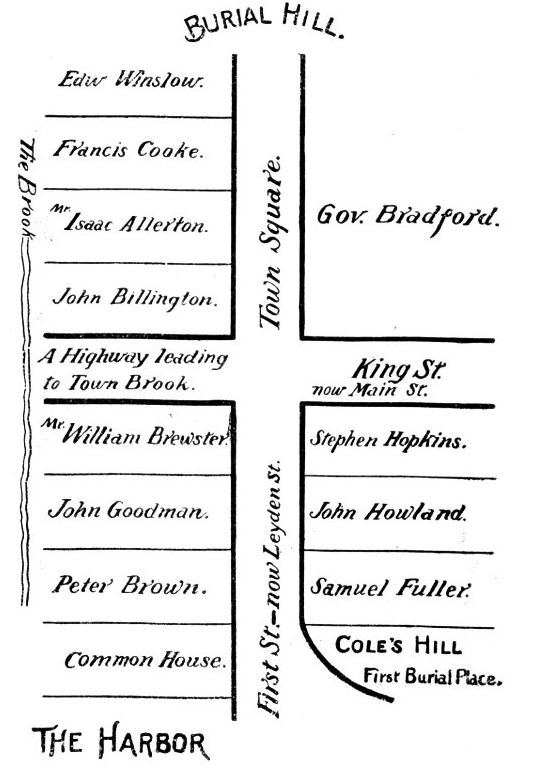 BURIAL HILL.
Edw Winslow.
Francis Cooke.
Mr. Isaac Allerton.
John Billington.
The Brook
Town Square.
Gov. Bradford.
A Highway leading
to Town Brook.
King St.
now Main St.
Mr. William Brewster.
John Goodman.
Peter Brown.
Common House.
First St.-now Leyden St.
Stephen Hopkins.
John Howland.
Samuel Fuller.
COLE'S HILL
First Burial Place.
THE HARBOR